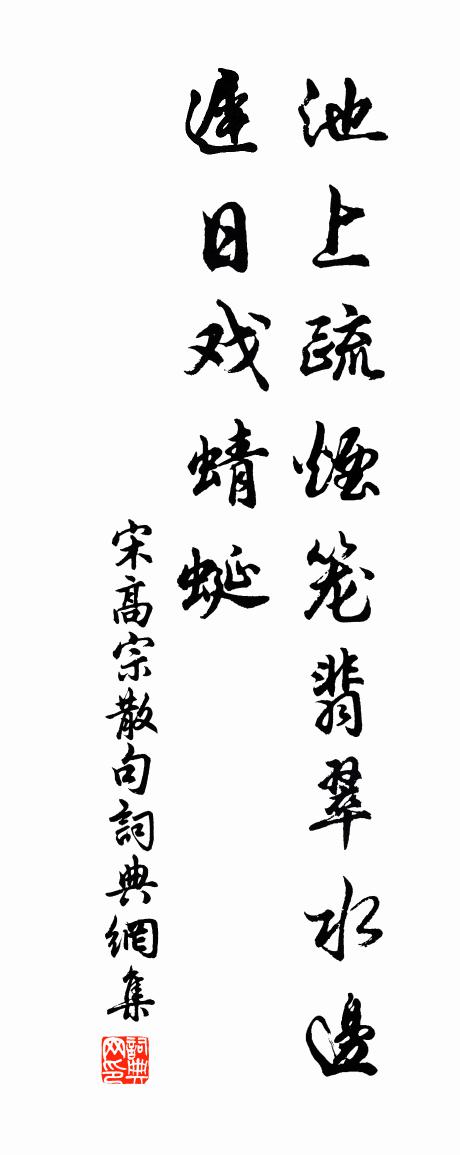 池上疏煙笼翡翠水邊
遲日戏蜻蜓
宋高宗散句詞典網集
詞典网印